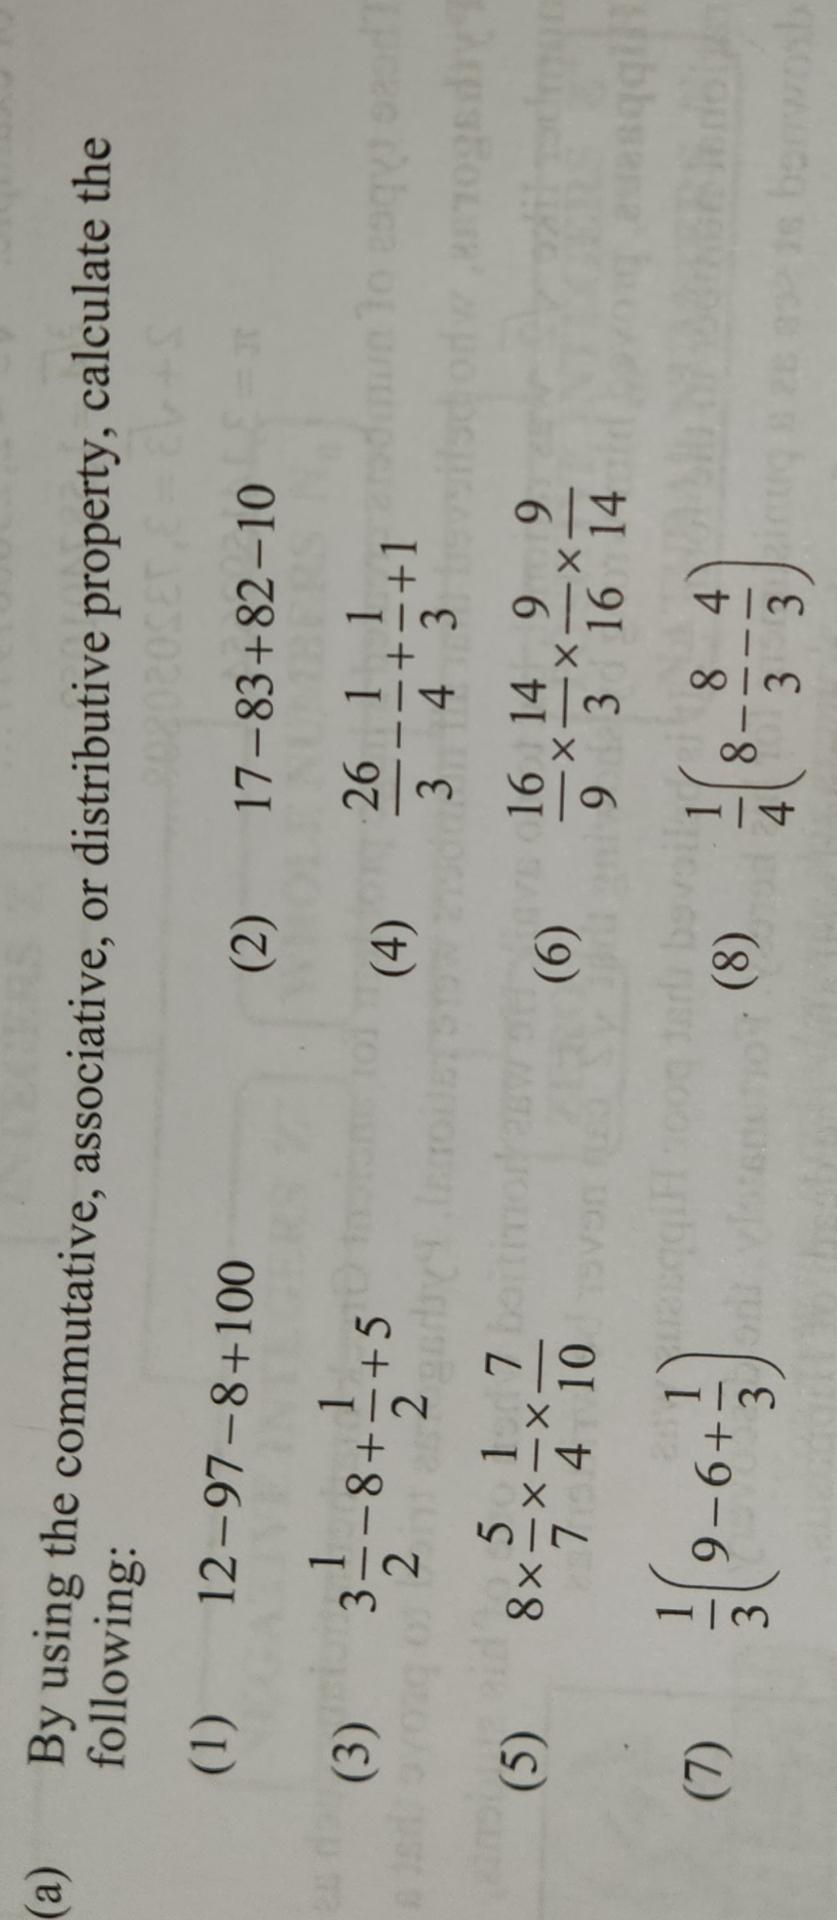 (a) By using the commutative, associative, or distributive property, calculate the
following:
(1) 12−97−8+100 (2) 17−83+82−10
(3) 3 1/2 −8+ 1/2 +5 (4) 26/3 − 1/4 + 1/3 +1
(5) 8× 5/7 × 1/4 × 7/10 (6) 16/9 × 14/3 × 9/16 × 9/14
(7) 1/3 ( 9−6+ 1/3 ) (8) 1/4 ( 8− 8/3 − 4/3 )